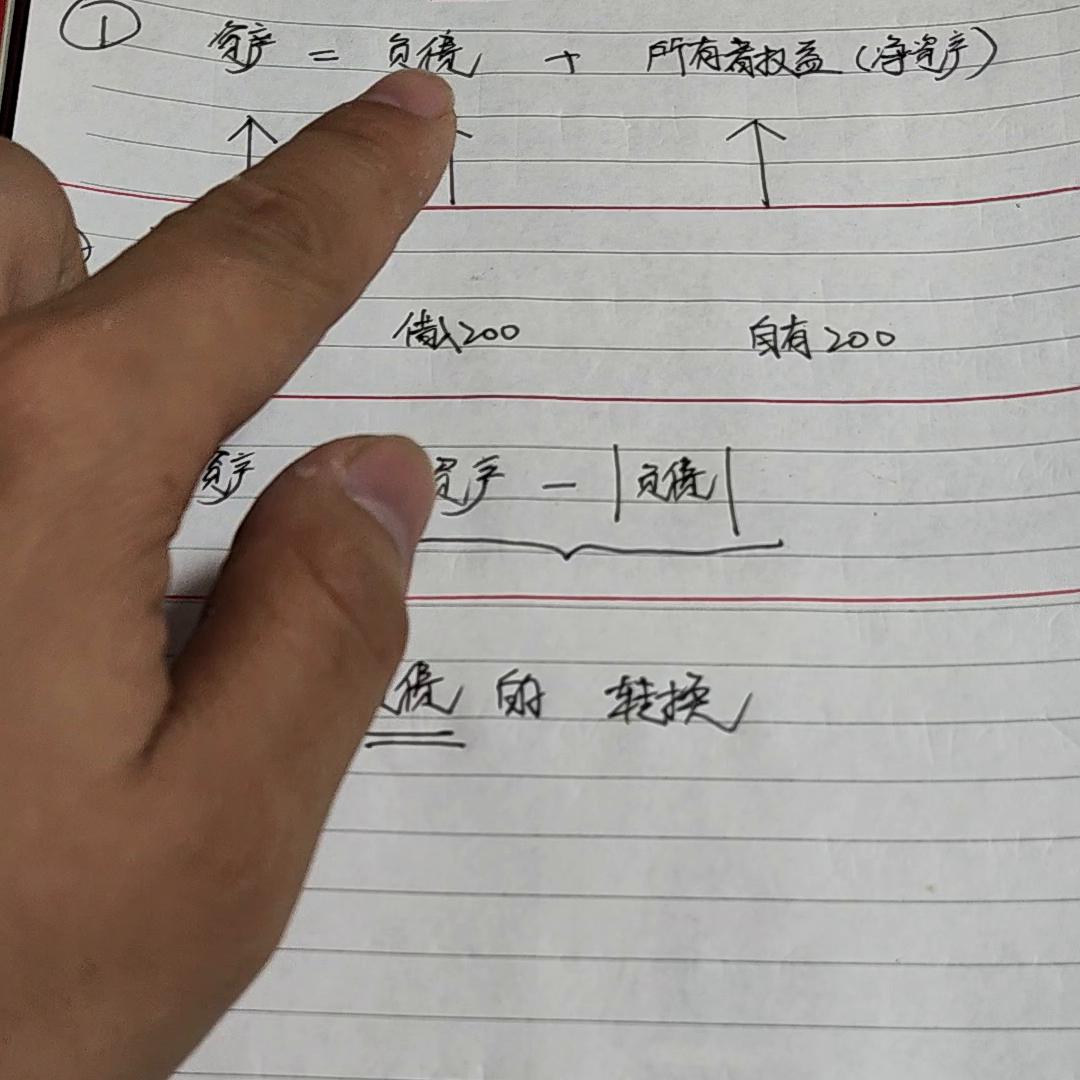 ① 资产 = 负债 + 所有者权益(净资产)
借入200 自有200
资产 资产 - |负债|
债 的 转换